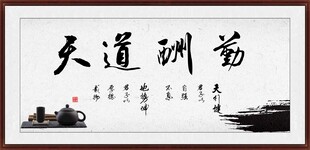 天道酬勤
天行健
君子以
自強
不息
地勢坤
君子以
厚德
載物